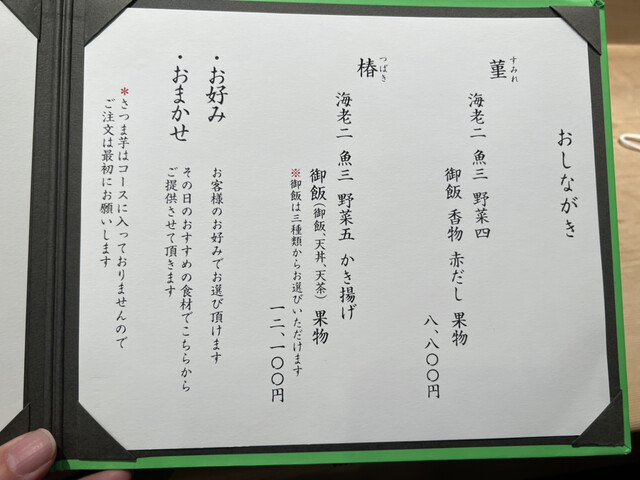 おしながき
菫
すみれ
海老二 魚三 野菜四
御飯 香物 赤だし 果物
八、八〇〇円
椿
つばき
海老二 魚三 野菜五 かき揚げ
御飯(御飯、天丼、天茶) 果物
※御飯は三種類からお選びいただけます
一二、一〇〇円
・お好み
お客様のお好みでお選び頂けます
・おまかせ
その日のおすすめの食材でこちらから
ご提供させて頂きます
*さつま芋はコースに入っておりませんので
ご注文は最初にお願いします